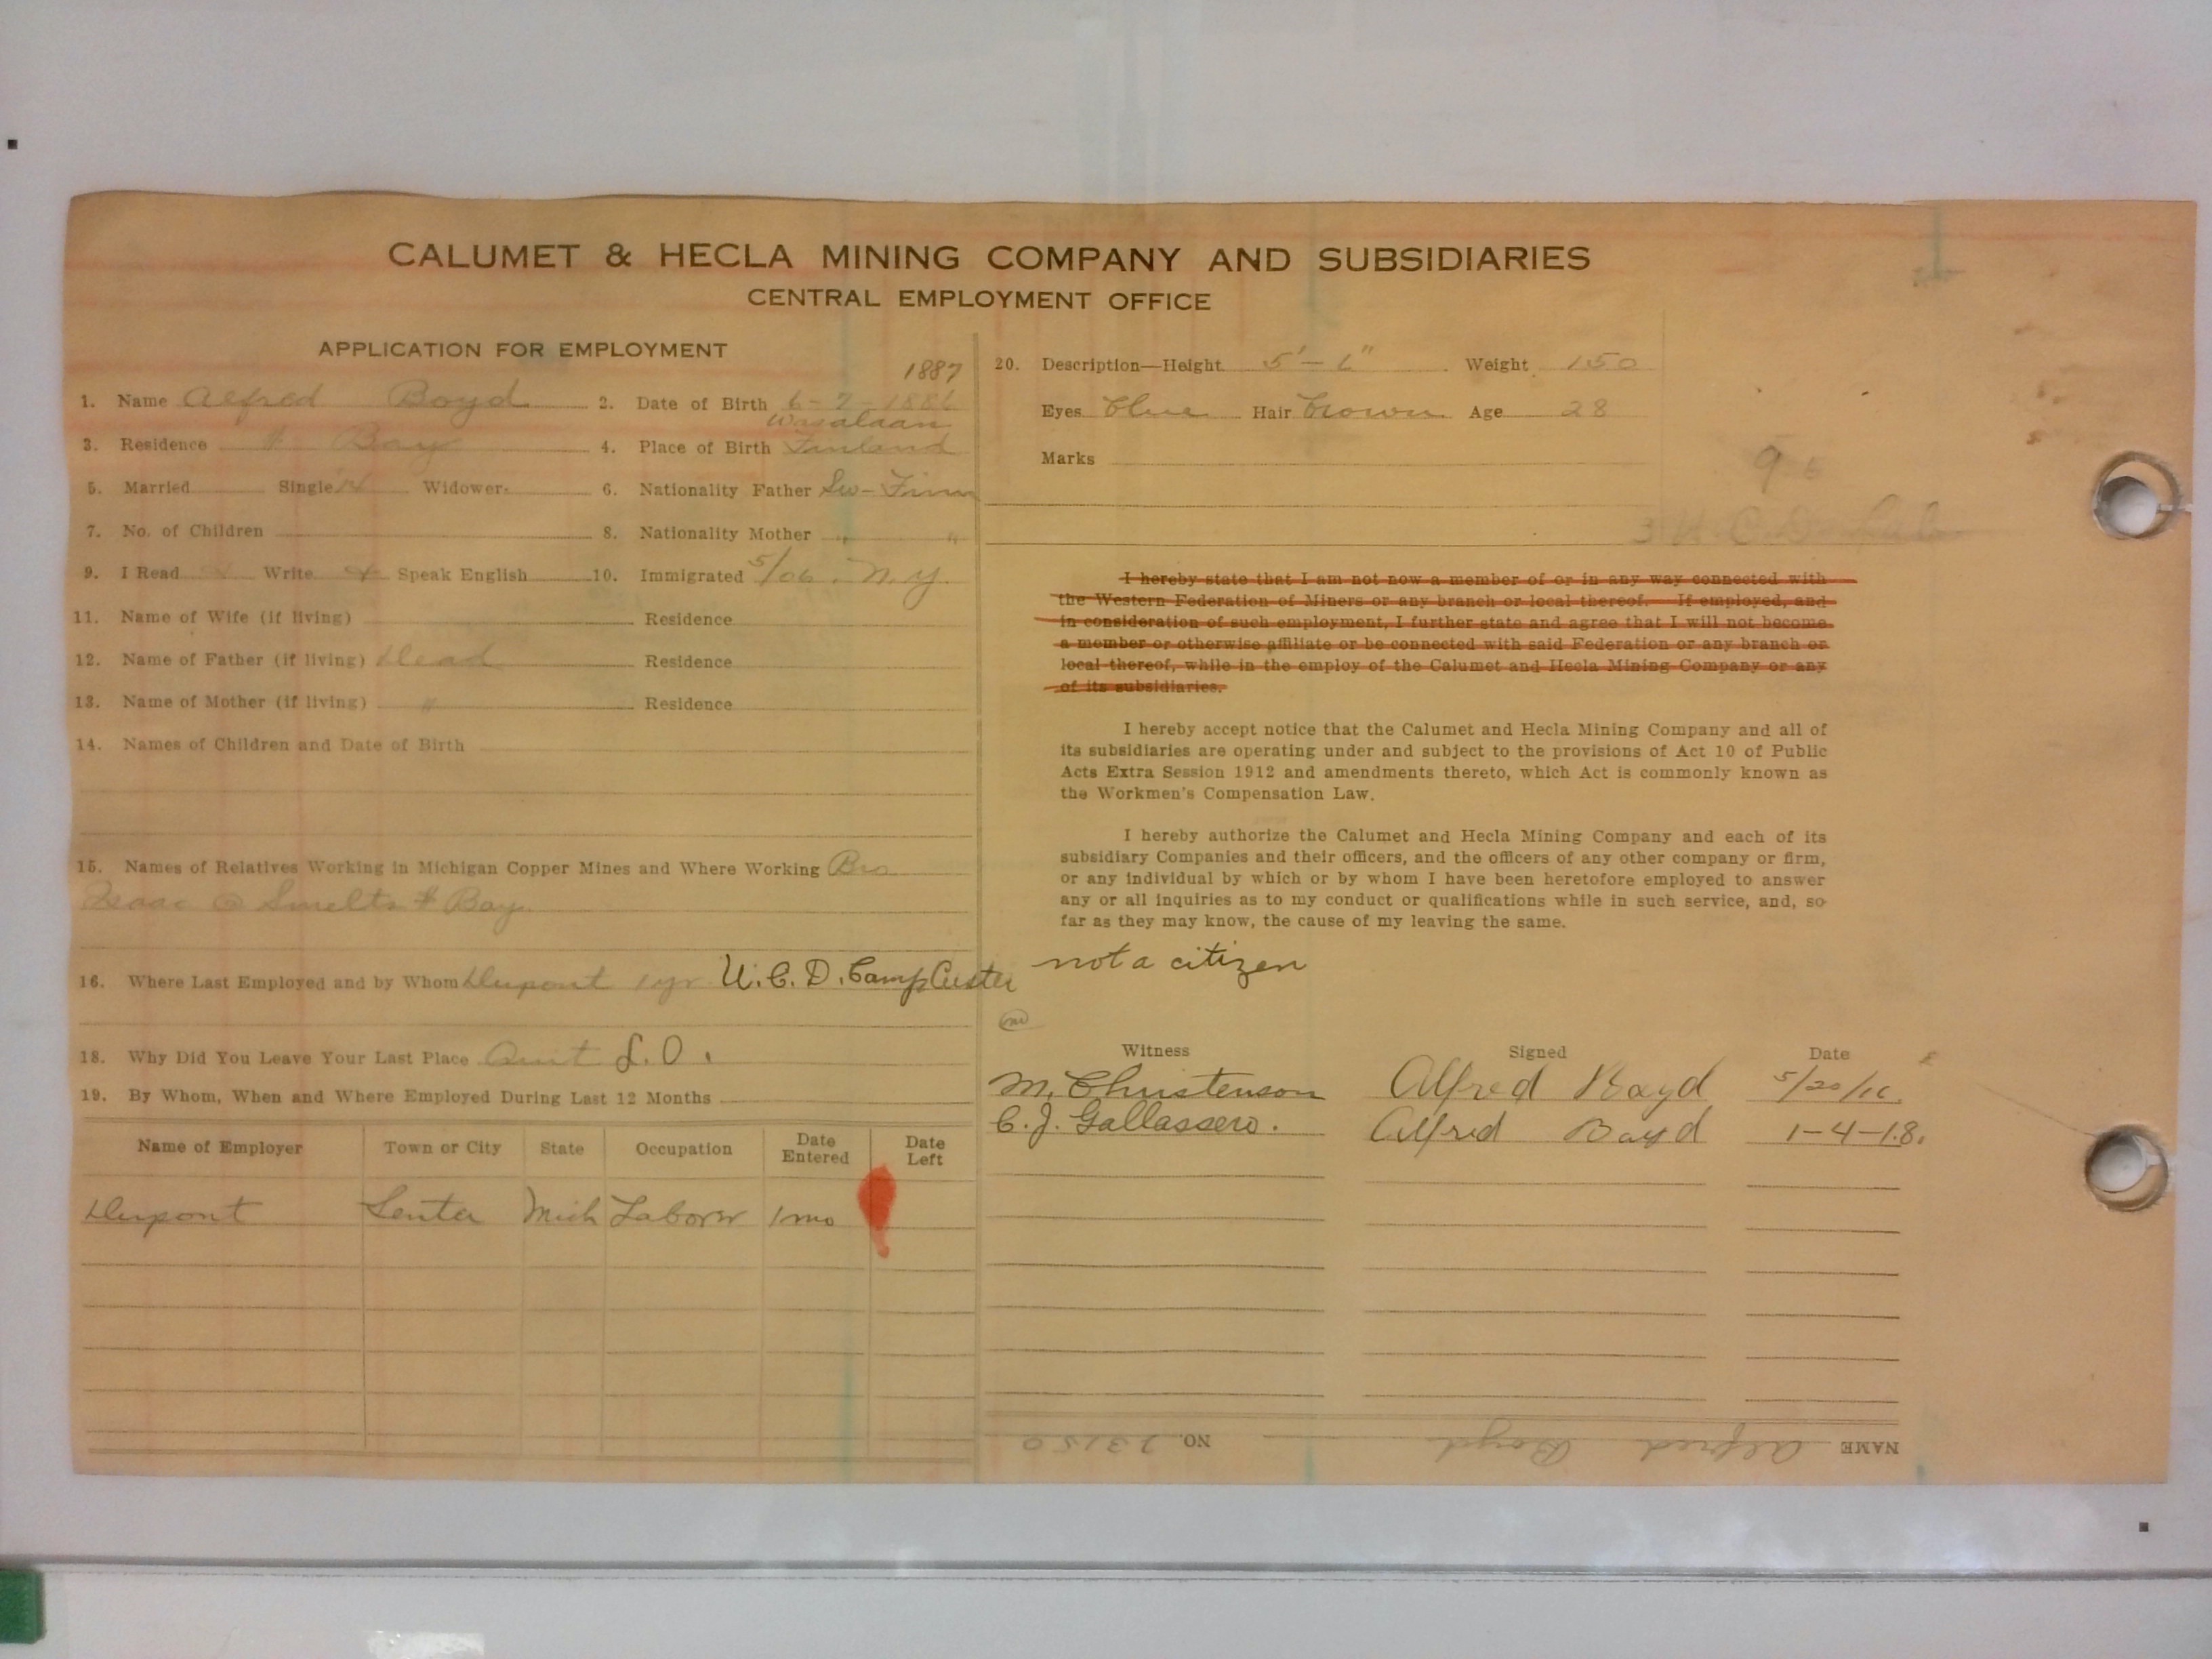 CALUMET & HECLA MINING COMPANY AND SUBSIDIARIES
CENTRAL EMPLOYMENT OFFICE
APPLICATION FOR EMPLOYMENT
1887
1. Name Alfred Boyd 2. Date of Birth 6-7-1886
Wasalaan
3. Residence # Bay 4. Place of Birth Finland
5. Married Single Widower 6. Nationality Father Sw-Finn
7. No. of Children 8. Nationality Mother " "
9. I Read Write Speak English 10. Immigrated 5/06. N.Y.
11. Name of Wife (if living) Residence
12. Name of Father (if living) Dead Residence
13. Name of Mother (if living) " Residence
14. Names of Children and Date of Birth
15. Names of Relatives Working in Michigan Copper Mines and Where Working Bro
Isaac @ Smelts # Bay
16. Where Last Employed and by Whom Dupont 1 yr U.C.D. Camp Custer
18. Why Did You Leave Your Last Place Quit L.O.
19. By Whom, When and Where Employed During Last 12 Months
Name of Employer Town or City State Occupation Date Entered Date Left
Dupont Senter Mich Laborer 1 mo
20. Description—Height 5'-6" Weight 150
Eyes blue Hair brown Age 28
Marks
I hereby state that I am not now a member of or in any way connected with
the Western Federation of Miners or any branch or local thereof. If employed, and
in consideration of such employment, I further state and agree that I will not become
a member or otherwise affiliate or be connected with said Federation or any branch or
local thereof, while in the employ of the Calumet and Hecla Mining Company or any
of its subsidiaries.
I hereby accept notice that the Calumet and Hecla Mining Company and all of
its subsidiaries are operating under and subject to the provisions of Act 10 of Public
Acts Extra Session 1912 and amendments thereto, which Act is commonly known as
the Workmen's Compensation Law.
I hereby authorize the Calumet and Hecla Mining Company and each of its
subsidiary Companies and their officers, and the officers of any other company or firm,
or any individual by which or by whom I have been heretofore employed to answer
any or all inquiries as to my conduct or qualifications while in such service, and, so
far as they may know, the cause of my leaving the same.
not a citizen
Witness Signed Date
M. Christenson Alfred Boyd 5/20/16.
C. J. Gallassero. Alfred Boyd 1-4-18.
NAME Alfred Boyd NO. 23150